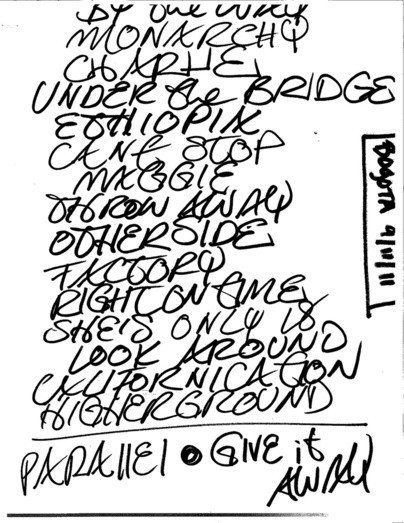 BY the WAY
MONARCHY
CHARLIE
UNDER the BRIDGE
ETHIOPIA
CAN't STOP
MAGGIE
THROW AWAY
OTHERSIDE
FACTORY
RIGHT ON TIME
SHE'S ONLY 18
LOOK AROUND
CALIFORNICATION
HIGHERGROUND
PARALLEL • GIVE it
AWAY
BOGOTA 9/11/11